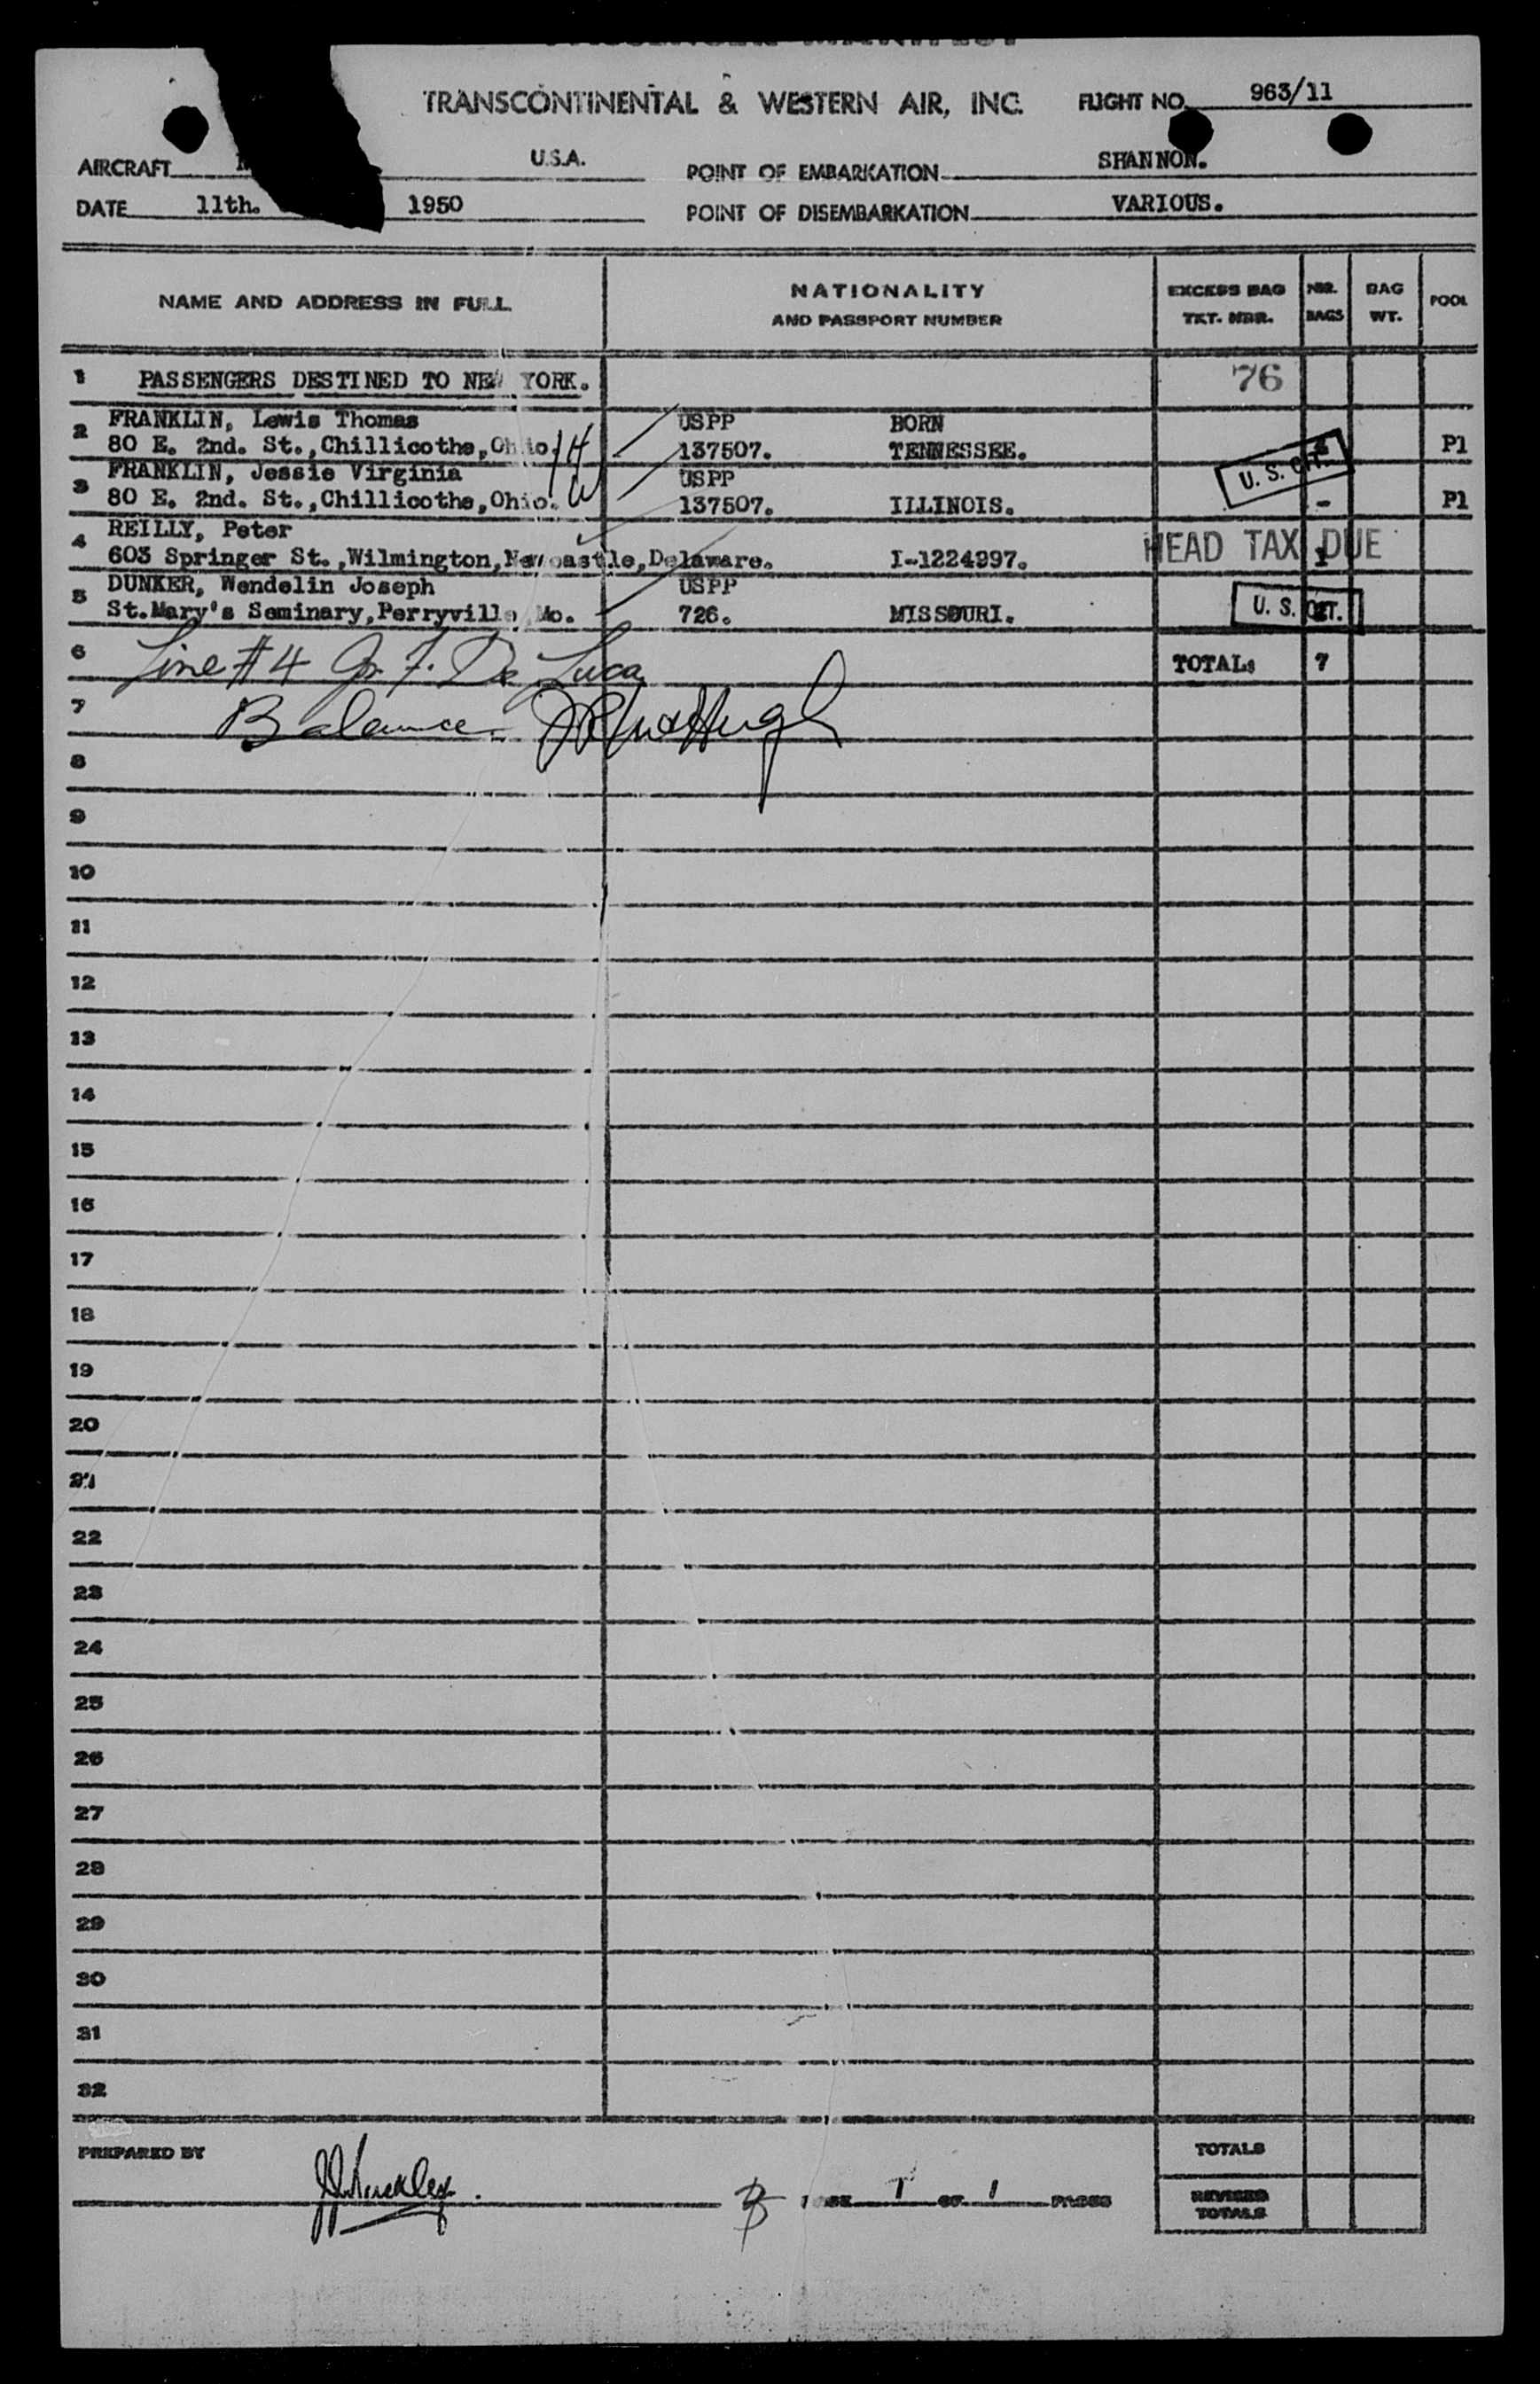 PASSENGER MANIFEST
TRANSCONTINENTAL & WESTERN AIR, INC. FLIGHT NO. 963/11
AIRCRAFT U.S.A. POINT OF EMBARKATION SHANNON.
DATE 11th. 1950 POINT OF DISEMBARKATION VARIOUS.
NAME AND ADDRESS IN FULL NATIONALITY AND PASSPORT NUMBER EXCESS BAG TKT. NBR. NBR. BAGS BAG WT. POOL
1 PASSENGERS DESTINED TO NEW YORK. 76
2 FRANKLIN, Lewis Thomas USPP BORN
80 E. 2nd. St.,Chillicothe,Ohio. 137507. TENNESSEE. U. S. CIT. P1
3 FRANKLIN, Jessie Virginia USPP
80 E. 2nd. St.,Chillicothe,Ohio. 137507. ILLINOIS. - P1
4 REILLY, Peter
603 Springer St.,Wilmington,Newcastle,Delaware. I-1224997. HEAD TAX DUE 1
5 DUNKER, Wendelin Joseph USPP
St.Mary's Seminary,Perryville,Mo. 726. MISSOURI. U. S. CIT.
6 Line #4 De Luca TOTAL: 7
7 Balance
8
9
10
11
12
13
14
15
16
17
18
19
20
21
22
23
24
25
26
27
28
29
30
31
32
PREPARED BY TOTALS
1 OF 1 PAGES REVISED TOTALS